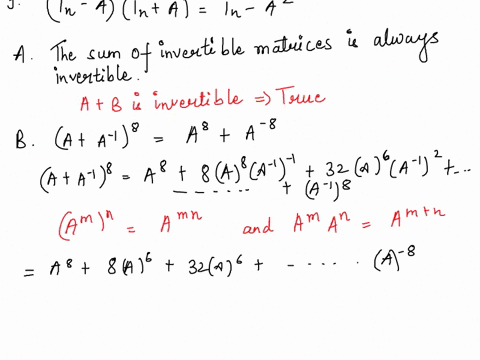 J. (In - A) (In + A) = In - A²
A. The sum of invertible matrices is always
invertible.
A + B is invertible => True
B. (A + A⁻¹)⁸ = A⁸ + A⁻⁸
(A + A⁻¹)⁸ = A⁸ + 8(A)⁸(A⁻¹)⁻¹ + 32(A)⁶(A⁻¹)² + ...
- - - - - - - + (A⁻¹)⁸
(Aᵐ)ⁿ = Aᵐⁿ and Aᵐ Aⁿ = Aᵐ⁺ⁿ
= A⁸ + 8(A)⁶ + 32(A)⁶ + - - - - - . (A)⁻⁸